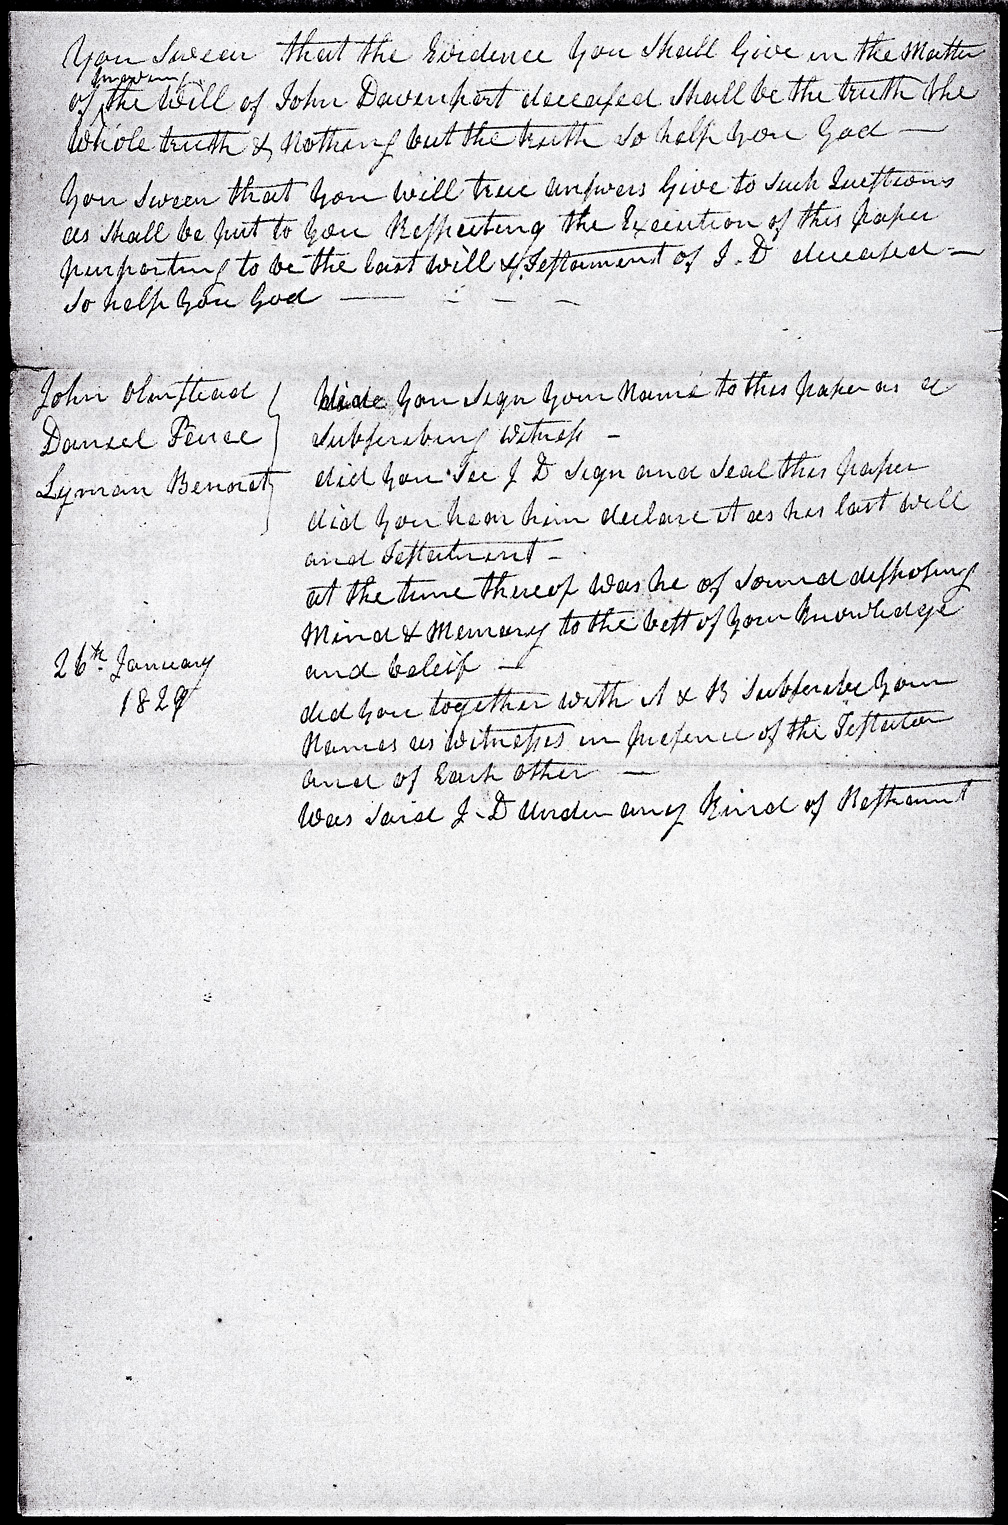 You Swear that the Evidence You Shall Give in the Matter
proving
of the Will of John Davenport deceased Shall be the truth the
Whole truth & Nothing but the truth So help You God —
You Swear that You will true answers Give to Such Questions
as Shall be put to You Respecting the Execution of this paper
purporting to be the last will & Testament of J. D deceased —
So help You God — - - -
John Olmstead
Daniel Pence
Lyman Bennet
26th January
1829
did You Sign Your Name to this paper as a
Subscribing Witness -
did You See J D Sign and Seal this paper
did You hear him declare it as his last Will
and Testament -
at the time thereof Was he of Sound disposing
Mind & Memory to the best of Your Knowledge
and beleif -
did You together with A & B Subscribe Your
Names as Witnesses in presence of the Testator
and of Each other —
Was Said J. D Under any Kind of Restraint